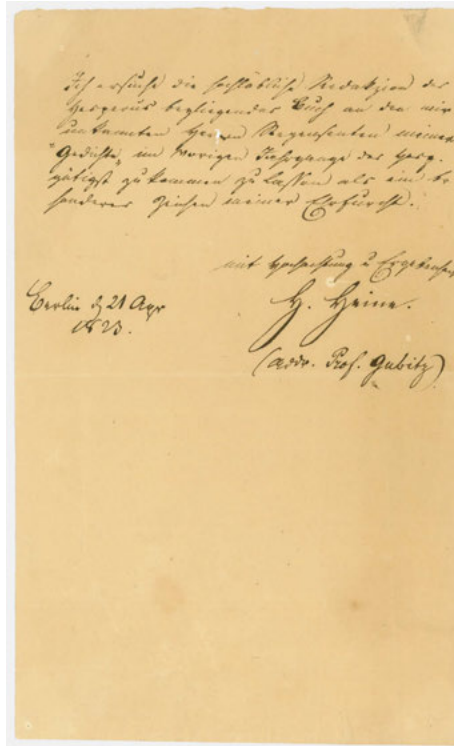 Ich ersuche die hochlöbliche Redakzion des
Hesperus beyliegendes Buch an den mir
unbekannten Herrn Rezensenten meiner
"Gedichte" im vorigen Jahrgange des Hesp.
gütigst zukommen zu lassen als ein be
sonderes Zeichen meiner Ehrfurcht.
mit Hochachtung u Ergebenheit
H. Heine.
Berlin d 21 Apr
1823.
(addr. Prof. Gubitz)